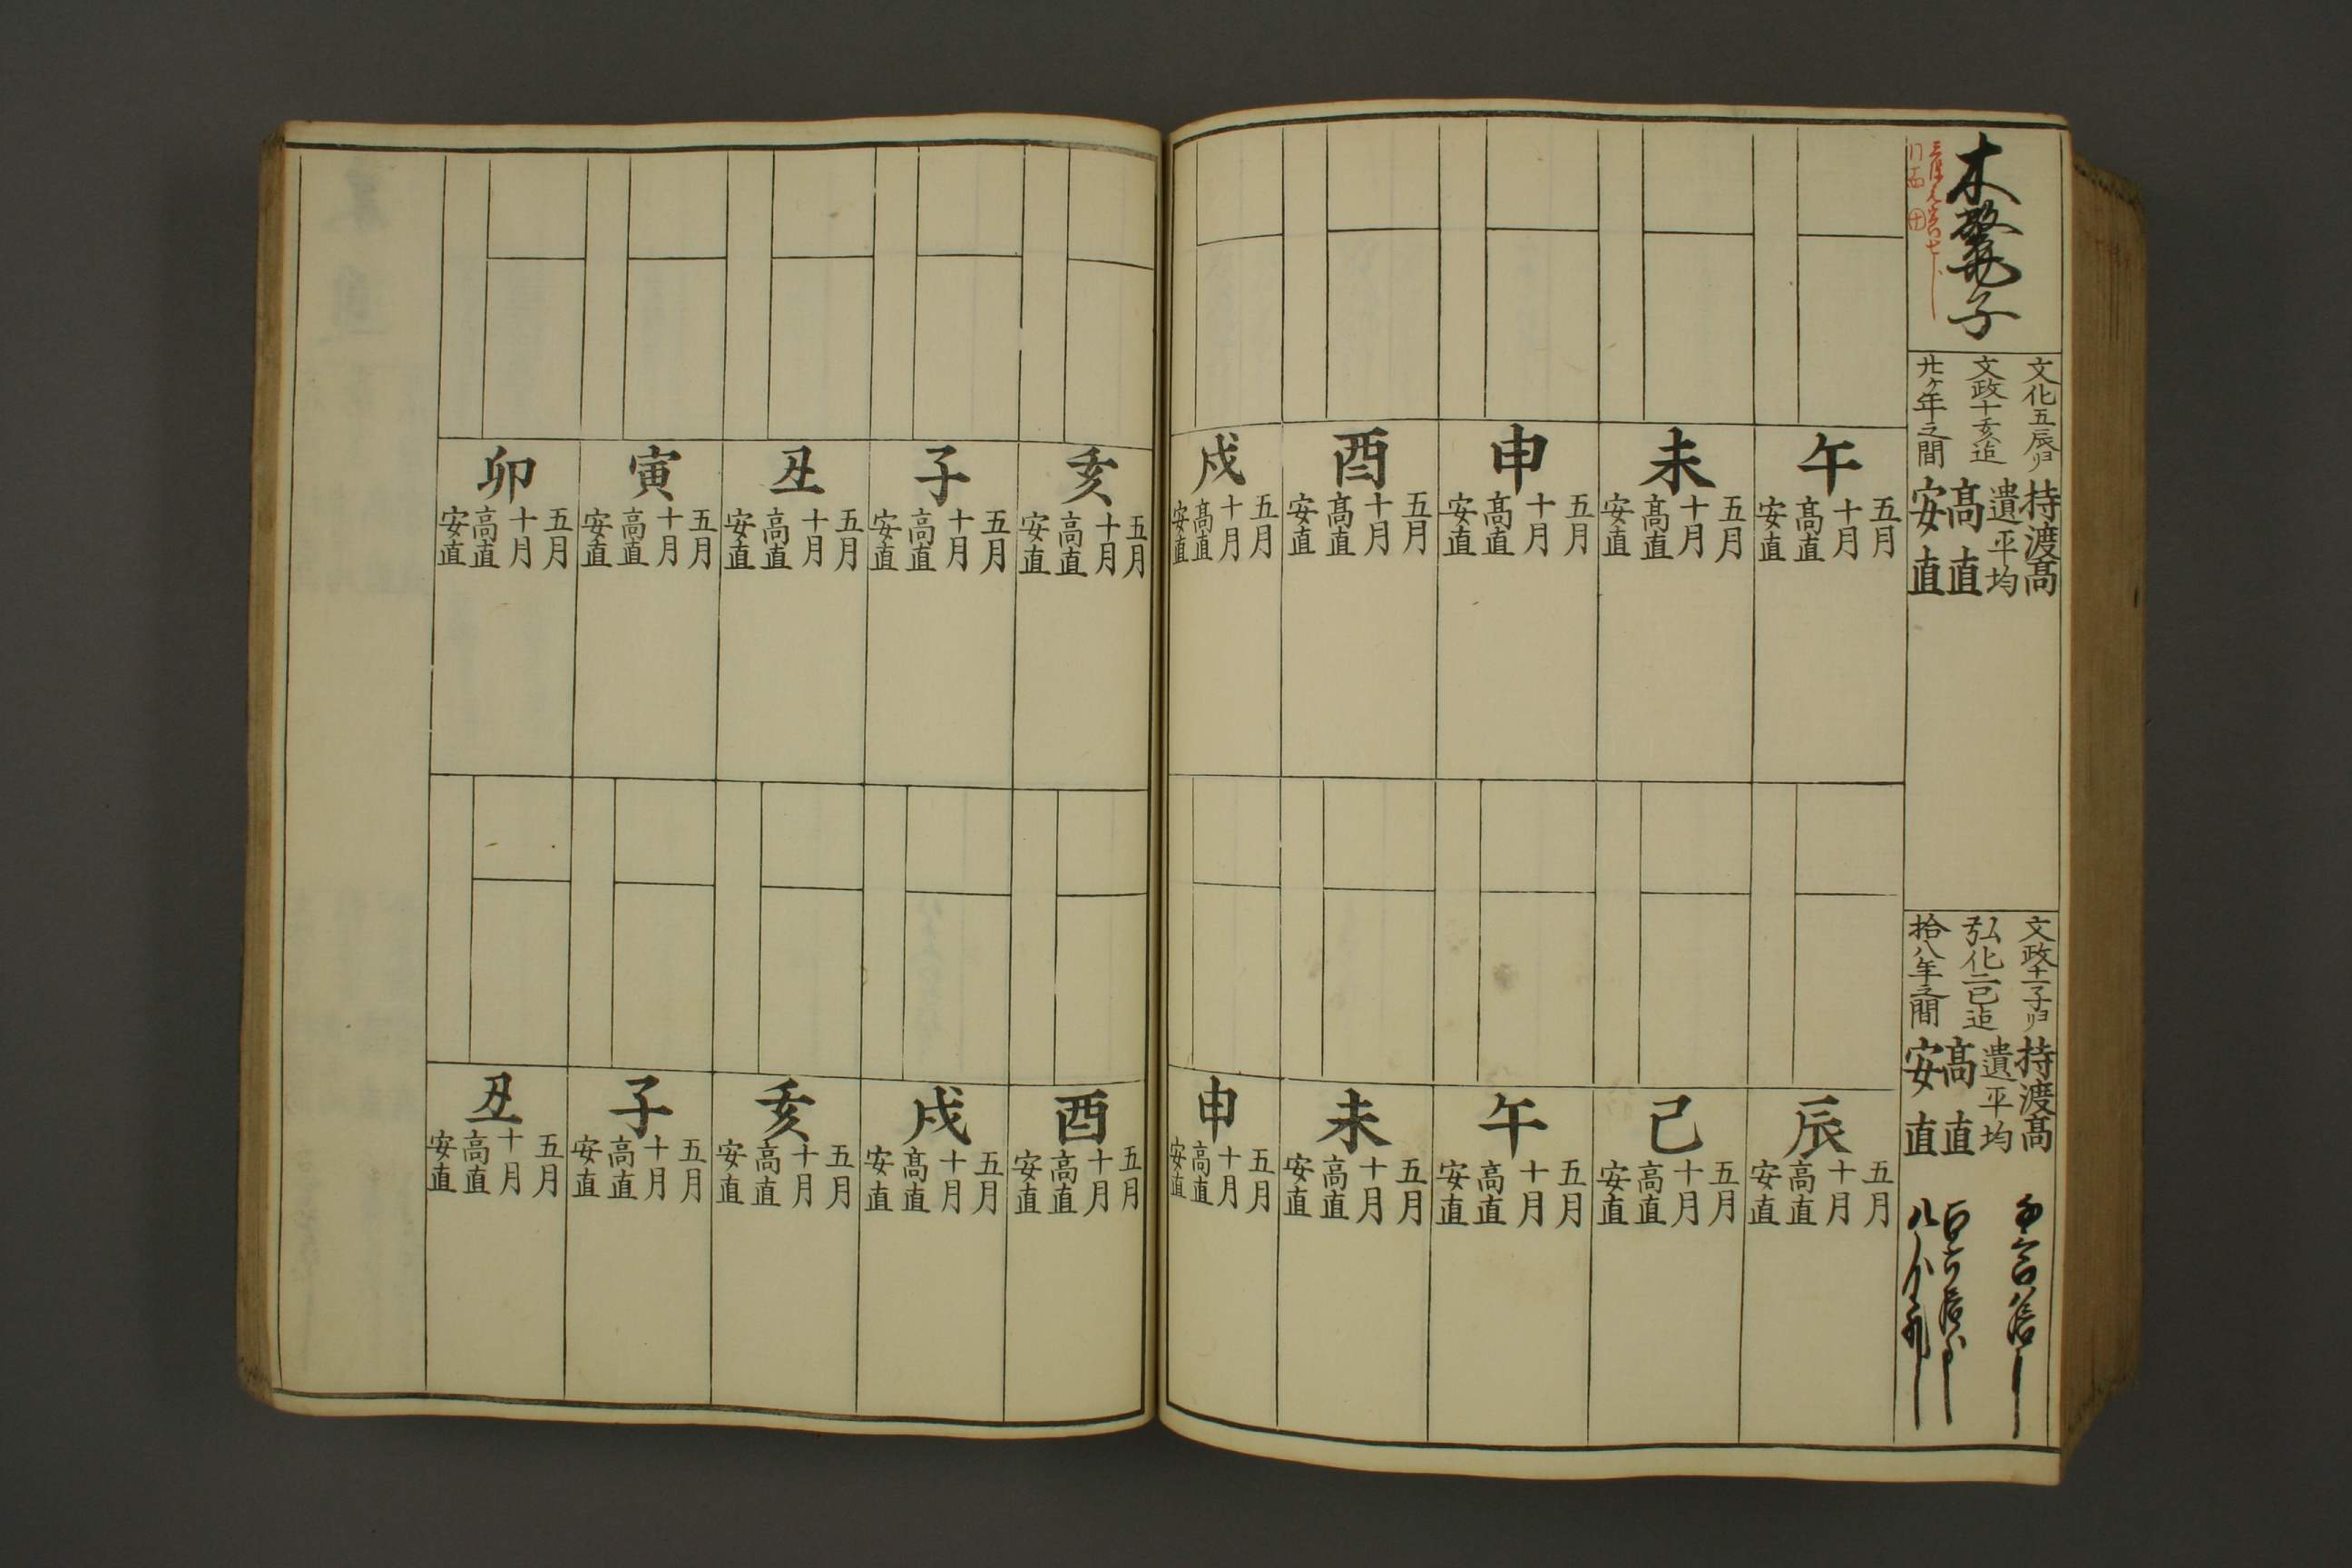 木鼈子
文化五辰ヨリ
文政十亥迄
廿ケ年之間
持渡髙
遺平均
髙直
安直
文政十一子ヨリ
弘化二巳迄
拾八年之間
持渡髙
遺平均
髙直
安直
午
五月
十月
髙直
安直
未
五月
十月
髙直
安直
申
五月
十月
髙直
安直
酉
五月
十月
髙直
安直
戌
五月
十月
髙直
安直
辰
五月
十月
高直
安直
巳
五月
十月
高直
安直
午
五月
十月
高直
安直
未
五月
十月
高直
安直
申
五月
十月
高直
安直
亥
五月
十月
高直
安直
子
五月
十月
高直
安直
丑
五月
十月
高直
安直
寅
五月
十月
高直
安直
卯
五月
十月
高直
安直
酉
五月
十月
高直
安直
戌
五月
十月
髙直
安直
亥
五月
十月
高直
安直
子
五月
十月
高直
安直
丑
五月
十月
高直
安直